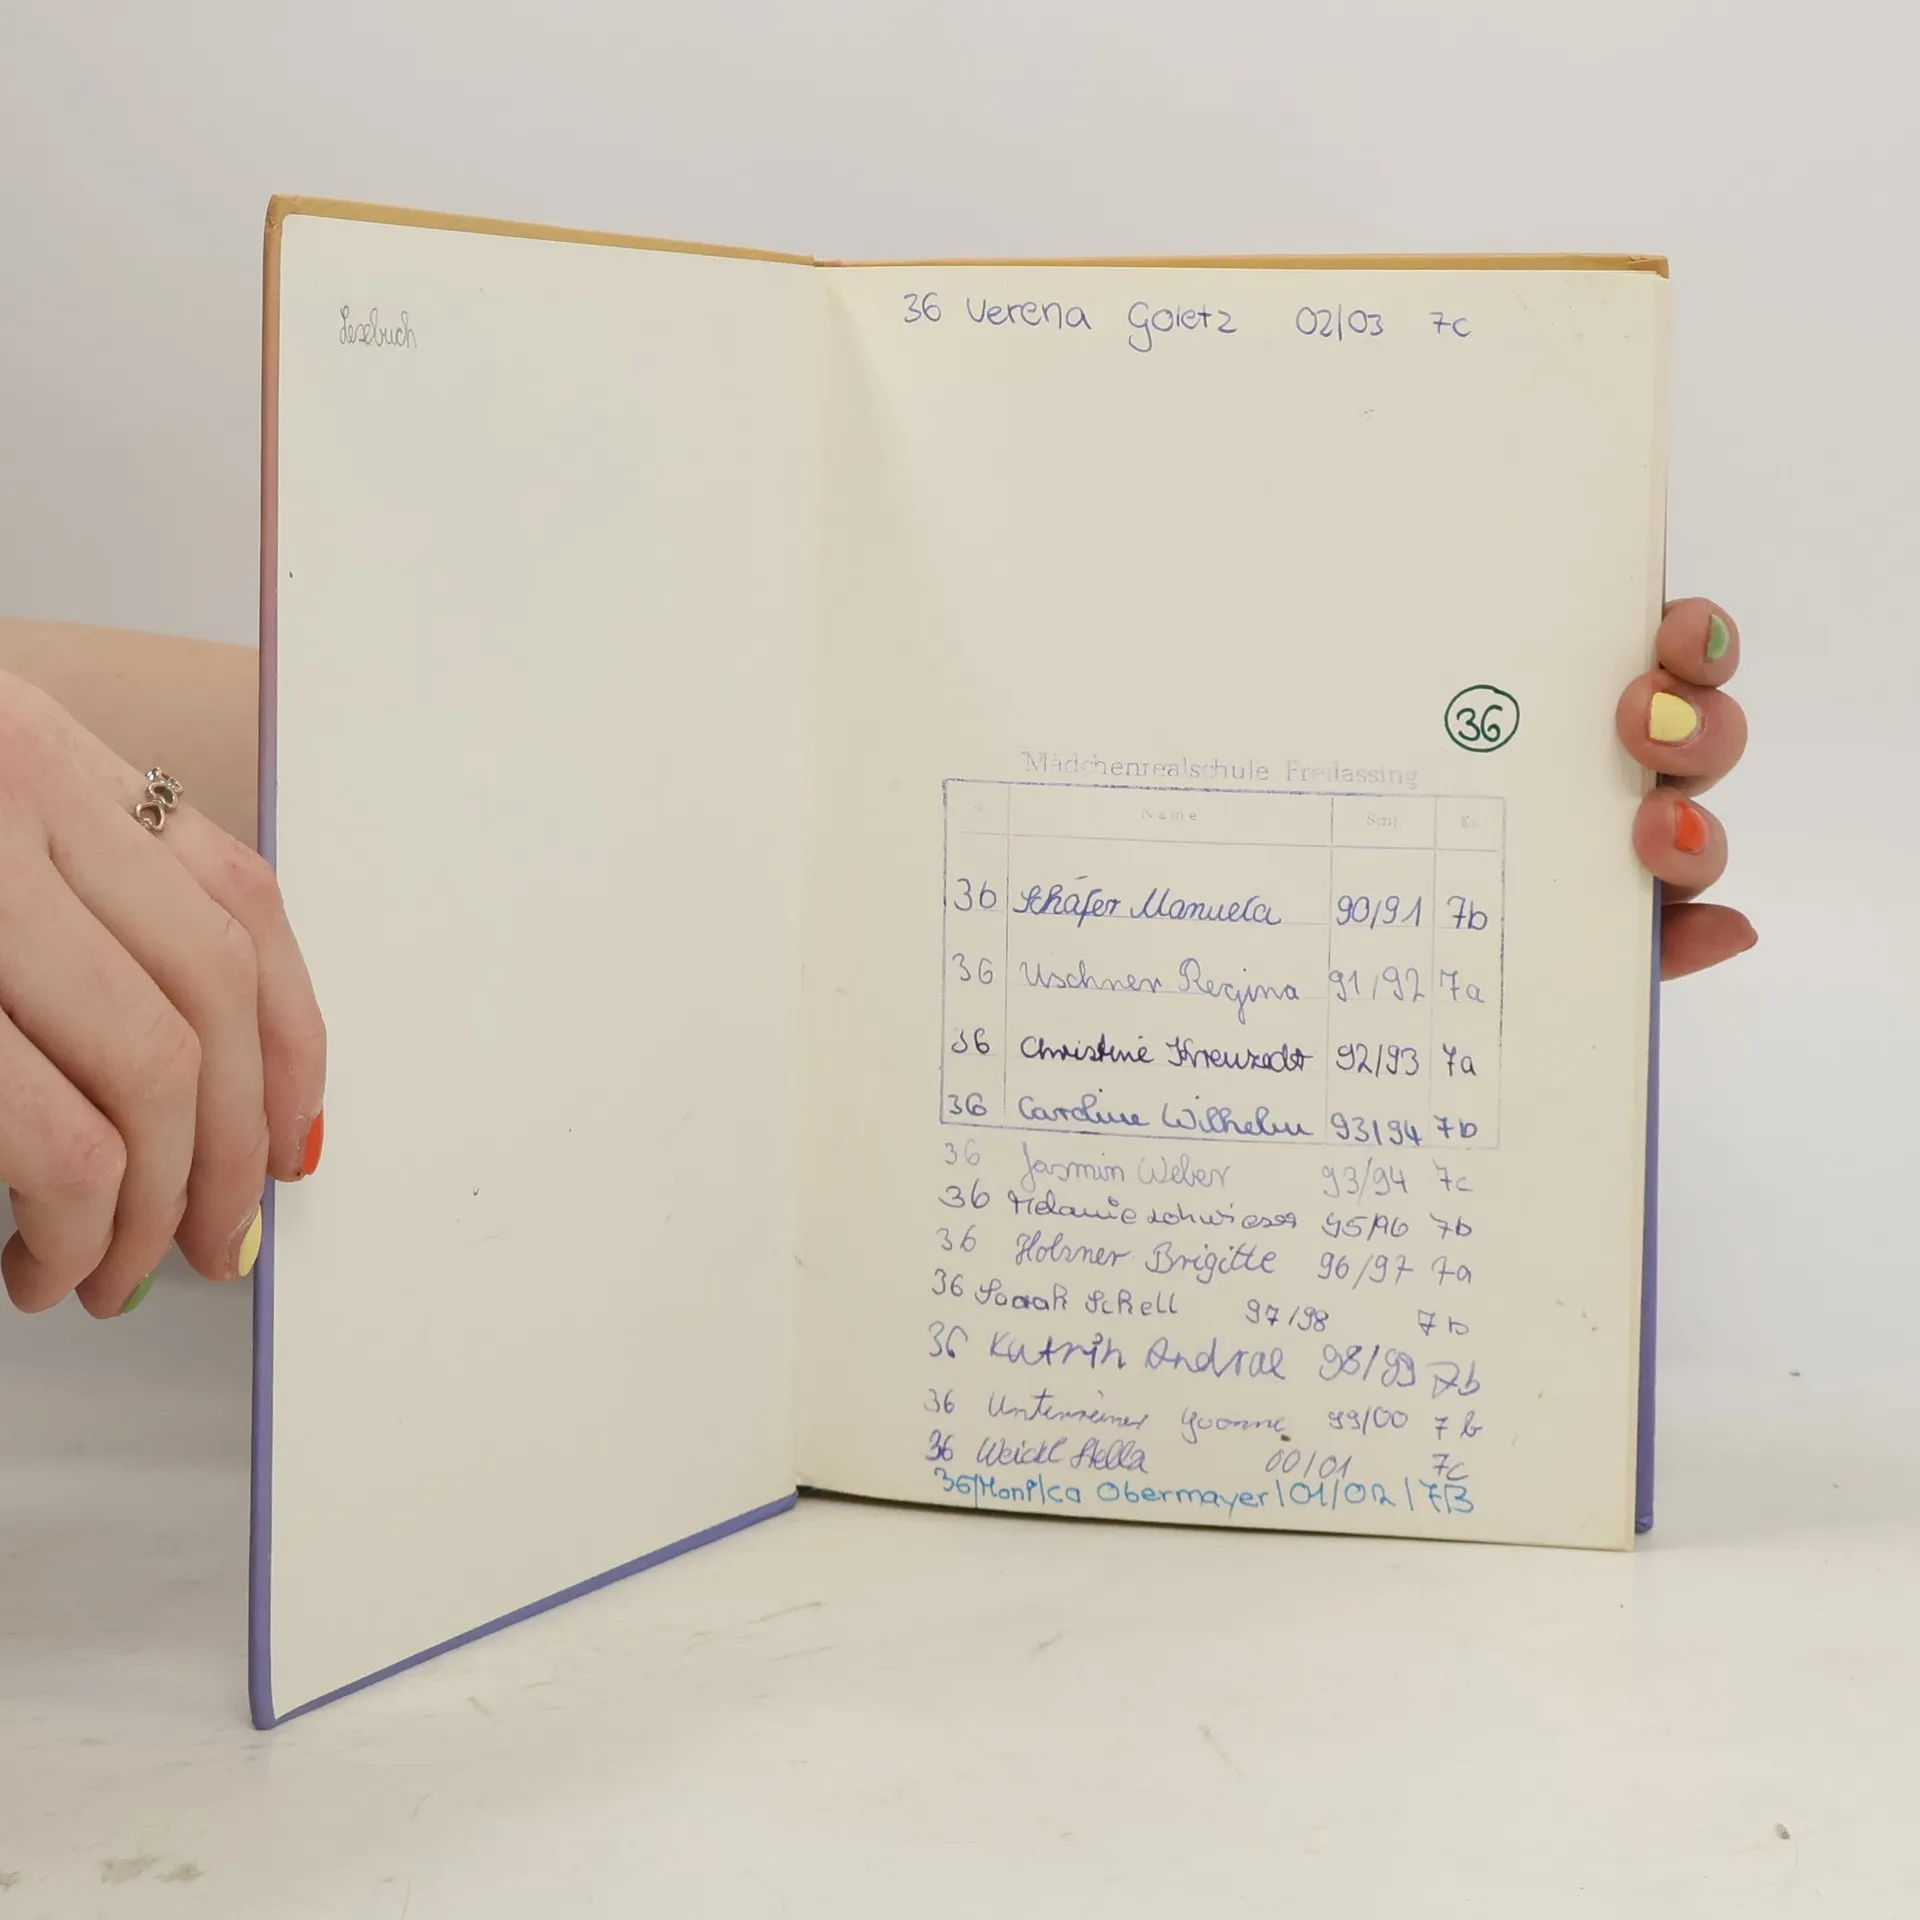 Lesebuch
36 Verena Goletz 02/03 7c
36
Mädchenrealschule Freilassing
Name
36 Schäfer Manuela 90/91 7b
36 Uschner Regina 91/92 7a
36 Christine 92/93 7a
36 Caroline Wilhelm 93/94 7b
36 Jasmin Weber 93/94 7c
36 Melanie 95/96 7b
36 Holzner Brigitte 96/97 7a
36 Sarah Schell 97/98 7b
36 Katrin Andrae 98/99 7b
36 Unterreiner Yvonne 99/00 7b
36 Weickl Stella 00/01 7c
36/Monika Obermayer/01/02/7B